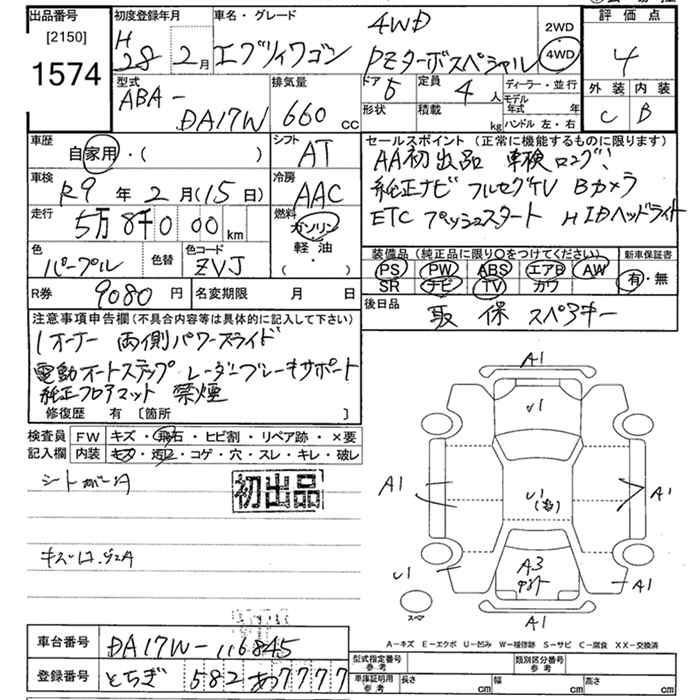 出品番号 初度登録年月 車名・グレード 4WD 2WD 評価点
[2150] H 28年 2月 エブリィワゴン PZターボスペシャル 4WD 4
1574 型式 排気量 ドア 5 定員 4人 ディーラー・並行 外装 内装
ABA-DA17W 660cc 形状 積載 kg モデル年式 年 ハンドル 左・右 C B
車歴 自家用・( ) シフト AT セールスポイント (正常に機能するものに限ります)
AA初出品 車検ロング!
車検 R9年 2月(15日) 冷房 AAC 純正ナビ フルセグTV Bカメラ
走行 5万8千000km 燃料 ガソリン 軽油 ( ・ ) ETC プッシュスタート HIDヘッドライト
色 パープル 色替 色コード ZVJ
装備品 (純正品に限り○をつけてください) 新車保証書
PS PW ABS エアB AW 有・無
SR ナビ TV カワ
R券 9080円 名変期限 月 日 後日品 取 保 スペアキー
注意事項申告欄(不具合内容等は具体的に記入して下さい)
1オーナー 両側パワースライド
電動オートステップ レーダーブレーキサポート
純正フロアマット 禁煙
修復歴 有 〔箇所 〕
検査員 FW キズ・飛石・ヒビ割・リペア跡・×要
記入欄 内装 キズ・汚レ・コゲ・穴・スレ・キレ・破レ
初出品
A1
U1
A1
U1
A1
A3
U1
A1
A1
A-キズ E-エクボ U-凹み W-補修跡 S-サビ C-腐食 XX-交換済
車台番号 DA17W-116845 型式指定番号 参考 類別区分番号 参考
登録番号 とちぎ 582 あ 7777 車庫証明用 参考 長さ cm 幅 cm 高さ cm